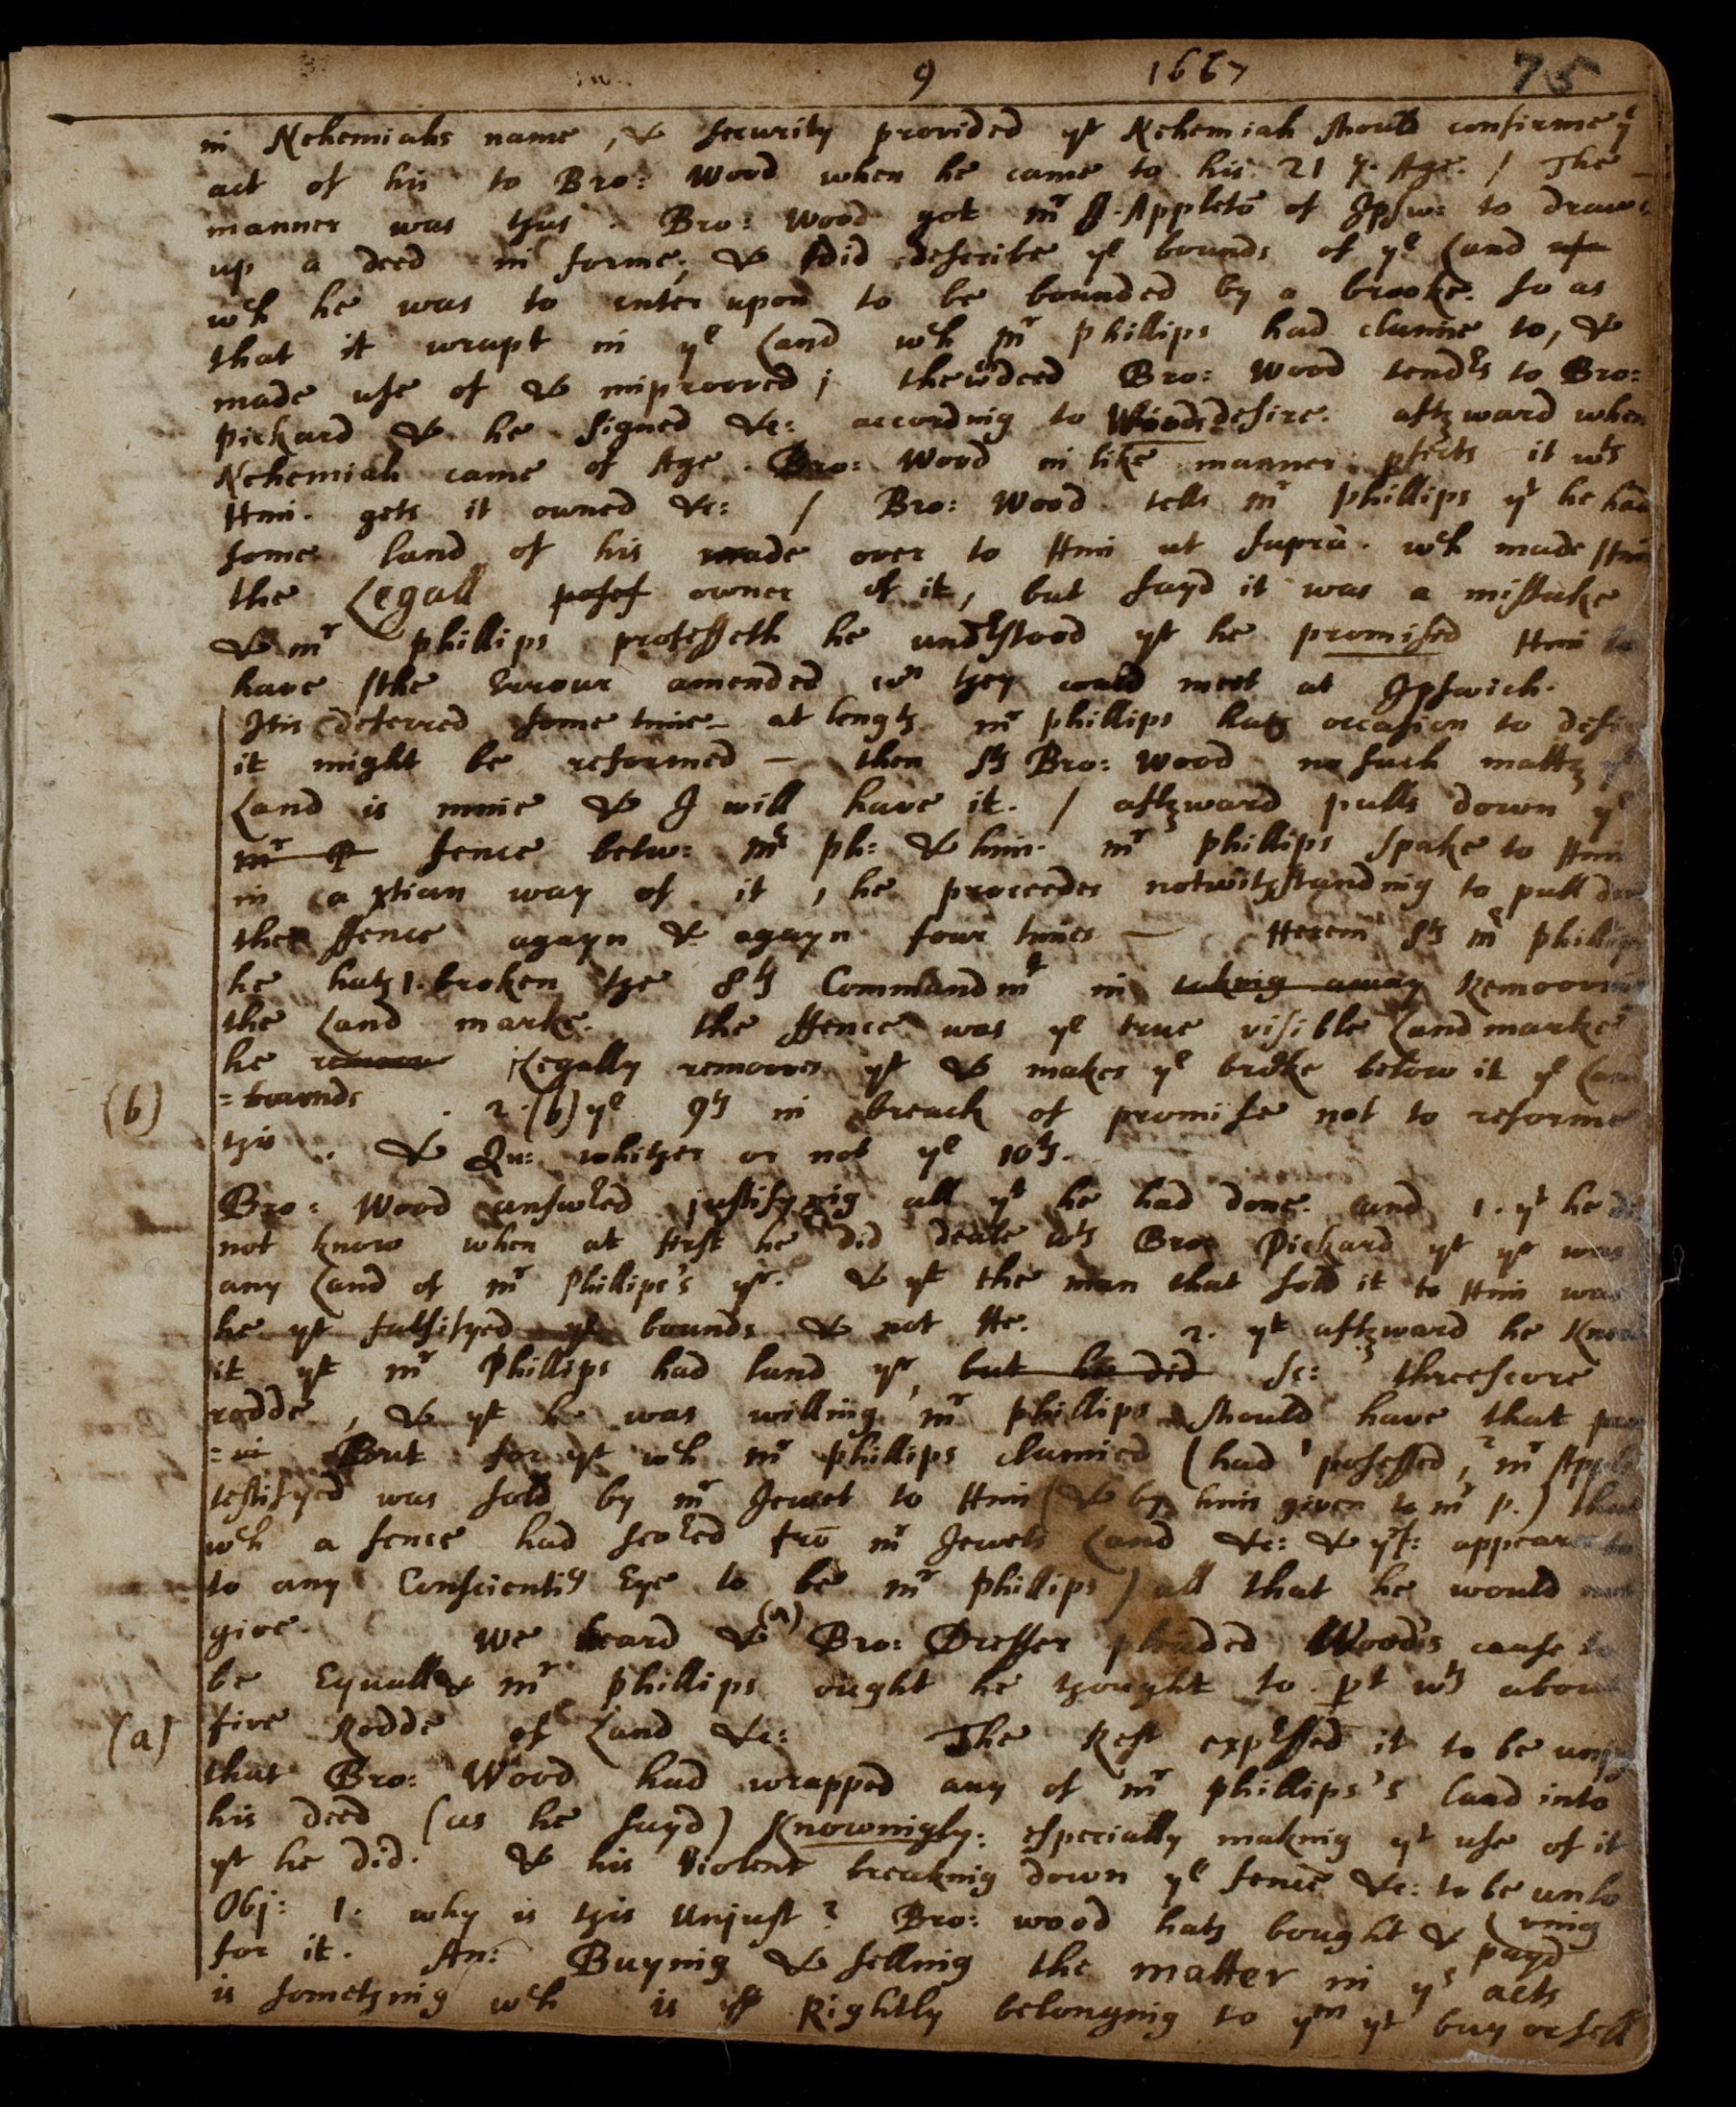 9 1667 75
in Nehemiahs name, & security provided yt Nehemiah should confirme ye
act of his to Bro: Wood when he came to his 21 y. Age. / The
manner was thus. Bro: Wood got mr J. Appletō of Ipsw: to draw
up a deed in forme; & did describe ye bounds of ye land
wch he was to enter upon to be bounded by a brooke. so as
that it wrapt in ye land wch mr Phillips had claime to, &
made use of & improoved; the deed Bro: Wood tendrs to Bro:
Pickard & he signed &c: according to Woods desire. aftrward when
Nehemiah came of Age. Bro: Wood in like manner pfects it wth
Him. gets it owned &c: / Bro: Wood tells mr Phillips yt he had
some land of his made over to Him ut supra. wch made Him
the Legall posses owner of it, but sayd it was a mistake
& mr Phillips professeth he undrstood yt he promised Him to
have the Errour amended wn they could meet at Ipswich.
Itis deferred some time - at length mr Phillips hath occasion to desire
it might be reformed — then sth Bro: Wood no such mattr ye
Land is mine & I will have it. / aftrward pulls down ye
mr P fence betw: mr Ph: & him. mr Phillips spake to Him
in a xtian way of it, he proceedes notwithstanding to pull down
the ffence agayn & agayn four times — Herein sth mr Phillips
he hath 1. broken the 8th Commandmt in taking away Remooving
the Land marke. the ffence was ye true visible Land marke
he remoov illegally remooves yt & makes ye broke below it ye land
=bounds. 2. (b) ye 9th in breach of promise not to reforme
(b)
this. & Qu: whither or not ye 10th.
Bro: Wood answred justifying all yt he had done. and 1. yt he did
not know when at first he did deale wth Bro: Pickard yt yr was
any Land of mr Phillips's yr. & yt the man that sold it to Him was
he yt falsifyed ye bounds & not He. 2. yt aftrward he Knew
it yt mr Phillips had land yr, but he did sc: threescore
rodde, & yt he was willing mr Phillips should have that
But for yt wch mr Phillips claimed (had 1 possessed, 2 mr Apple
testifyed was sold by mr Jewet to Him (& by him given to mr P.) that
wch a fence had frō mr Jewets Land &c: & appeares to
to any Conscientis Eye to be mr Phillips) all that he would not
give. We heard & (a) Bro: Dresser pleaded Wood's cause to
be Equall & mr Phillips ought he thought to pt wth about
(a)
five Rodde of Land &c: The Rest exprssed it to be unjust
that Bro: Wood had wrapped any of mr Phillips's Land into
his deed (as he sayd) Knowingly: especially making yt use of it
yt he did. & his Violent breaking down ye fence &c: to be unlo
(ving
Obj: 1. why is this Unjust? Bro: wood hath bought & payd
for it. An: Buying & selling the matter in ys acts
is something wch is Rightly belonging to ym yt buy or sell